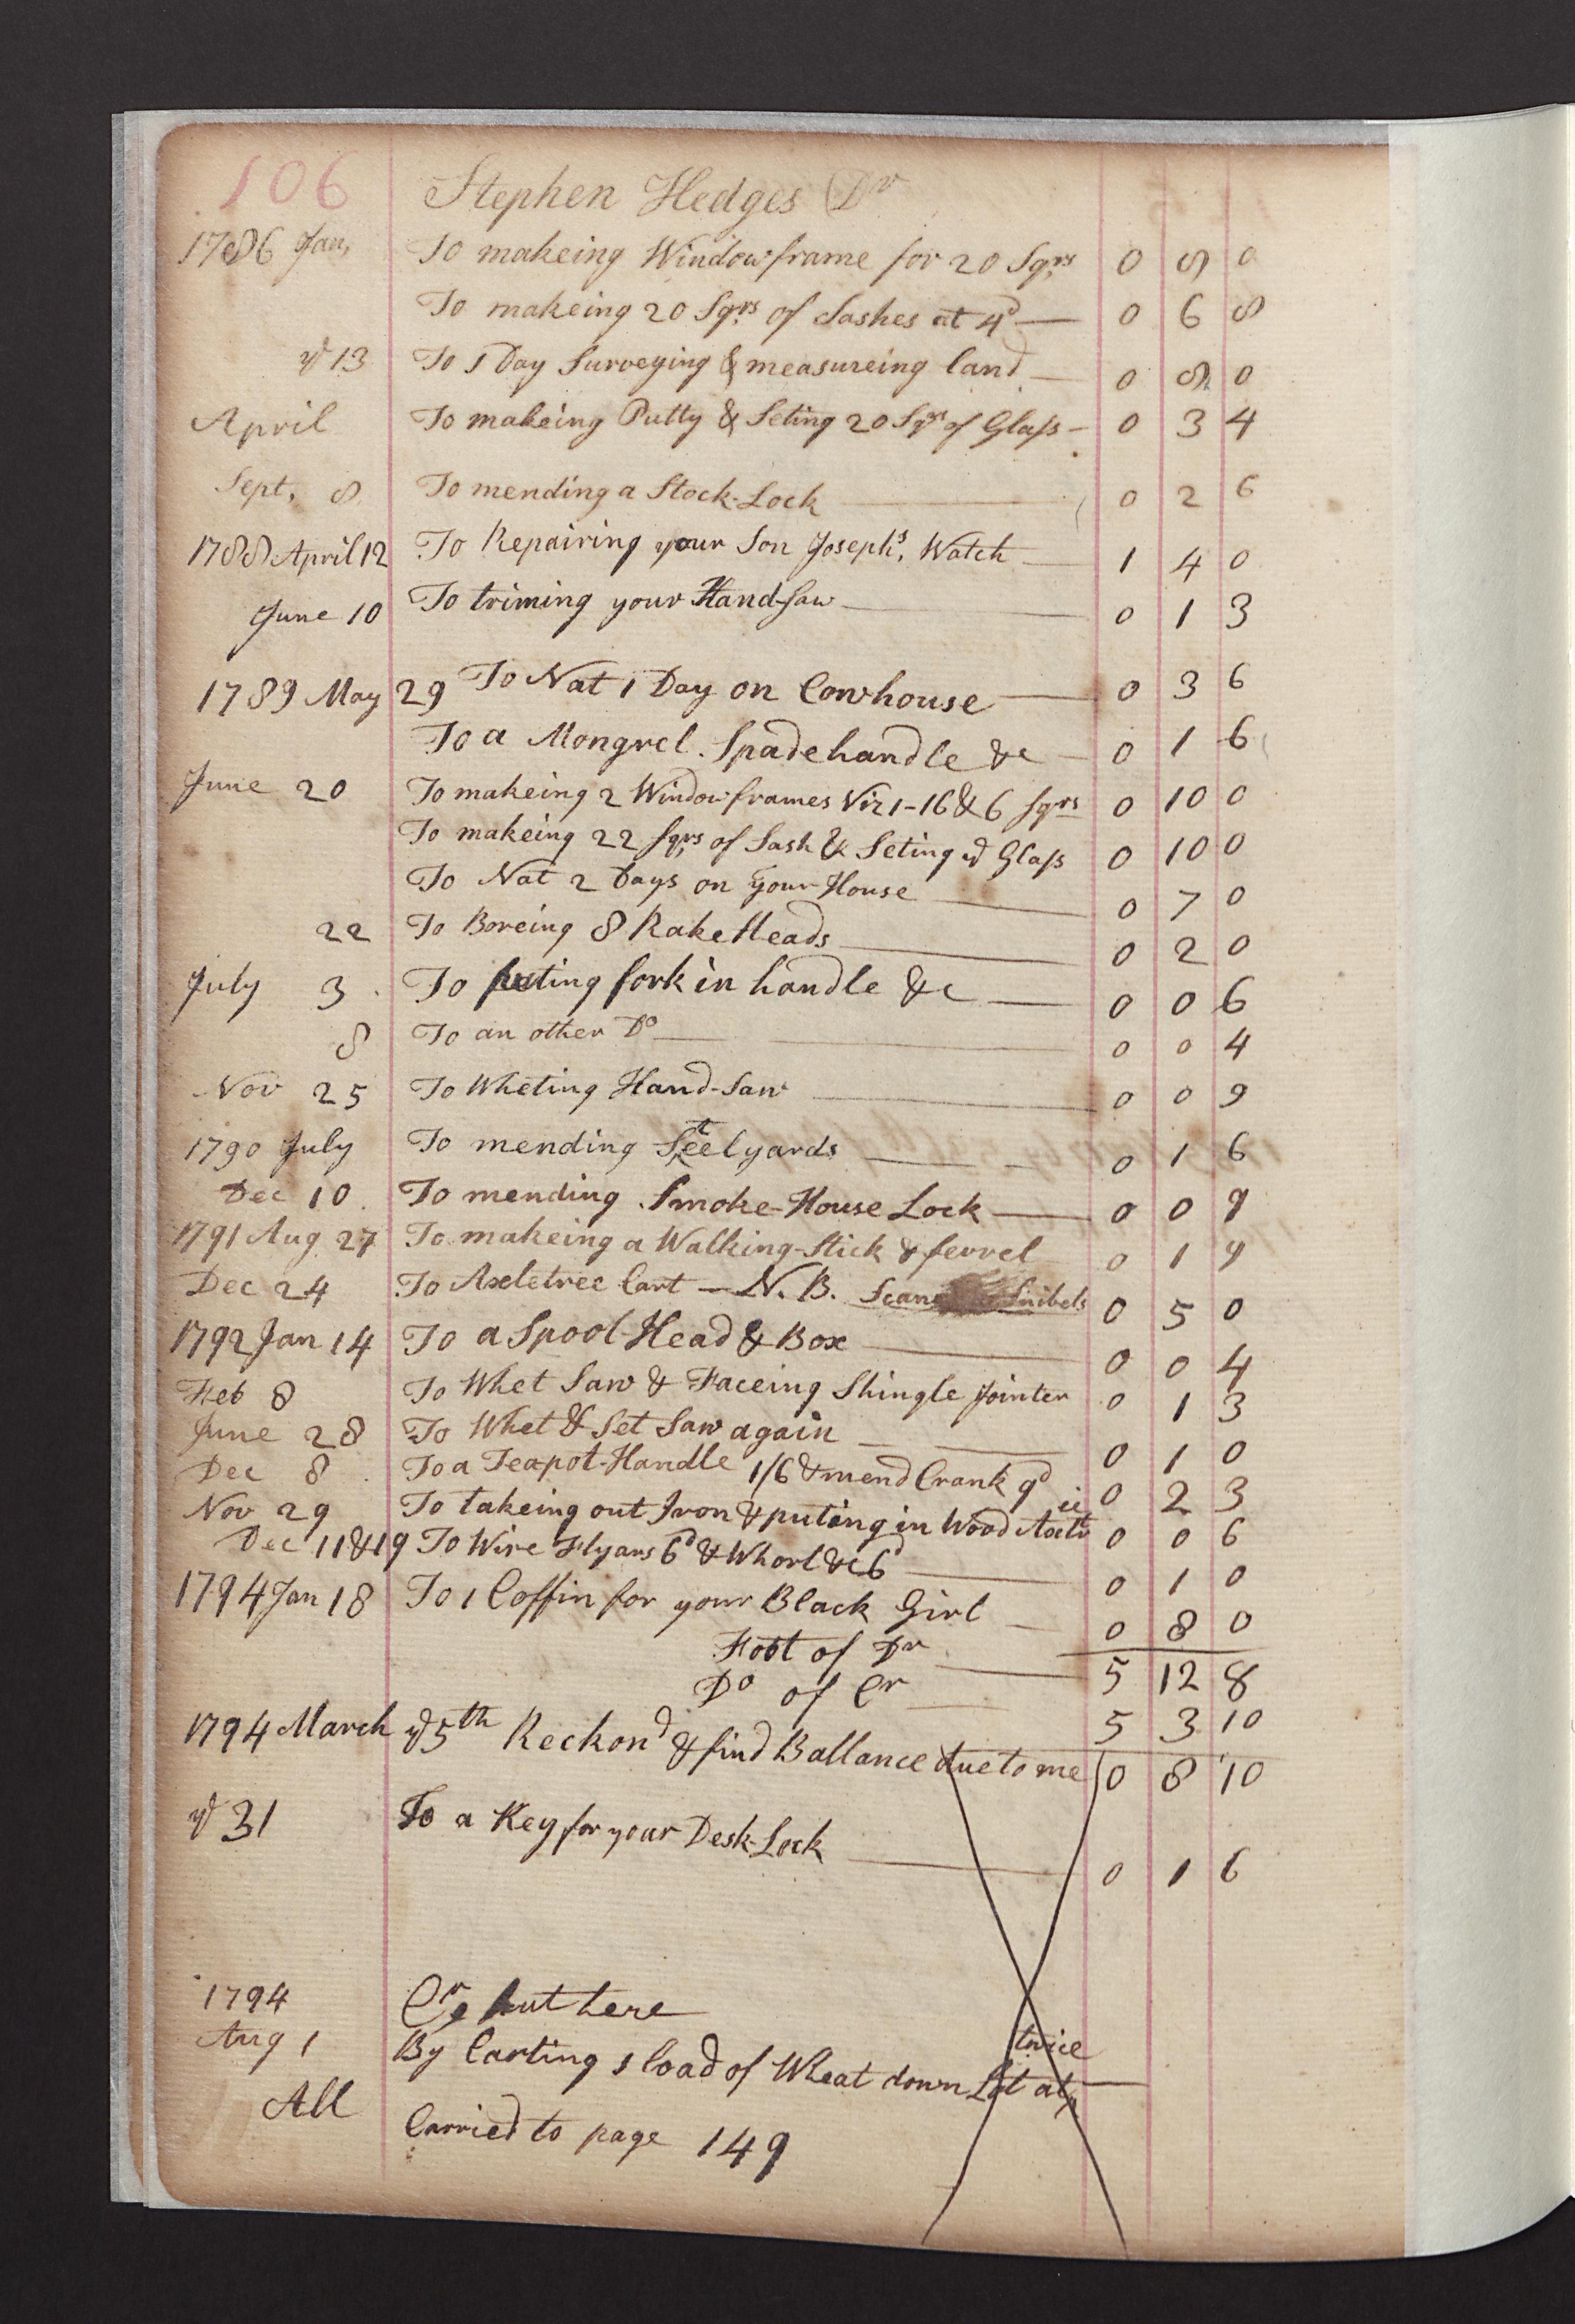 106 Stephen Hedges Dr
1786 Jan, To makeing Windowframe for 20 Sqrs 0 8 0
To makeing 20 Sqrs of Sashes at 4d 0 6 8
yd 13 To 1 Day Surveying & measureing land 0 8 0
April To makeing Putty & Seting 20 Sqrs of Glass 0 3 4
Sept, 8 To mending a Stock-Lock 0 2 6
1788 April 12 To Repairing your Son Joseph's, Watch 1 4 0
June 10 To triming your Hand-saw 0 1 3
1789 May 29 To Nat 1 Day on Cowhouse 0 3 6
To a Mongrel Spadehandle &c 0 1 6
June 20 To makeing 2 Windowframes Viz 1-16 & 6 sqrs 0 10 0
To makeing 22 sqrs of Sash & Seting yd Glass 0 10 0
To Nat 2 Days on your House 0 7 0
22 To Boreing 8 Rake Heads 0 2 0
July 3 To puting fork in handle &c 0 0 6
8 To an other Do 0 0 4
Nov 25 To Wheting Hand-Saw 0 0 9
1790 July To mending Steelyards 0 1 6
Dec 10 To mending Smoke-House Lock 0 0 9
1791 Aug 27 To makeing a Walking-Stick & ferrel 0 1 9
Dec 24 To Axeletree Cart — N. B. 0 5 0
1792 Jan 14 To a Spool-Head & Box 0 0 4
Feb 8 To Whet Saw & Faceing Shingle Jointer 0 1 3
June 28 To Whet & Set Saw again 0 1 0
Dec 8 To a Teapot-Handle 1/6 & mend Crank 9d 0 2 3
Nov 29 To takeing out Iron & puting in Wood 0 0 6
Dec 11 & 19 To Wire Flyars 6d & Whorl &c 6d 0 1 0
1794 Jan 18 To 1 Coffin for your Black Girl 0 8 0
Foot of Dr 5 12 8
Do of Cr 5 3 10
1794 March yd 5th Reckond & find Ballance due to me 0 8 10
yd 31 To a Key for your Desk-Lock 0 1 6
1794 Cr put here
Aug 1 By Carting 1 load of Wheat down Lot at twice
All Carried to page 149